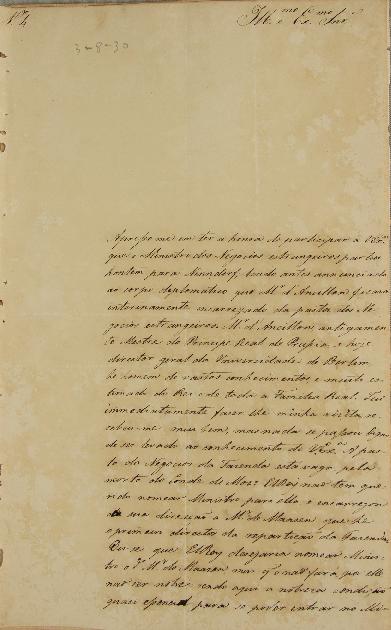 Nº 4
Illmo e Exmo Snr
3-8-30
Apresso me em ter a honra de participar a VExª
que o Ministro dos Negocios estrangeiros partio
hontem para Nenndorf, tendo antes annunciado
ao corpo diplomatico que Mr. d'Ancillon ficava
interinamente encarregado da pasta dos Ne
gocios estrangeiros. Mr. d'Ancillon antigamen
te Mestre do Principe Real de Prussia, e hoje
director geral da Universidade de Berlim
he homem de vastos conhecimentos e muito es
timado do Rei e de toda a Familia Real. Fui
immediatamente fazer lhe minha visita, re
cebeu-me mui bem, mas nada se passou digno
de ser levado ao conhecimento de VExª. A pas
ta dos Negocios da Fazenda esta vaga pela
morte do Conde de Moz. ElRei não tem que
rido nomear Ministro para ella e encarregou
da sua direcção a Mr. de Maasen que he
o primeiro director da repartição da Fazenda.
Diz-se que ElRey desejaria nomear Minis
tro o dº Mr. de Maasen mas q' o não fará por elle
não ser nobre, sendo aqui a nobreza condição
quasi essencial para se poder entrar no Mi